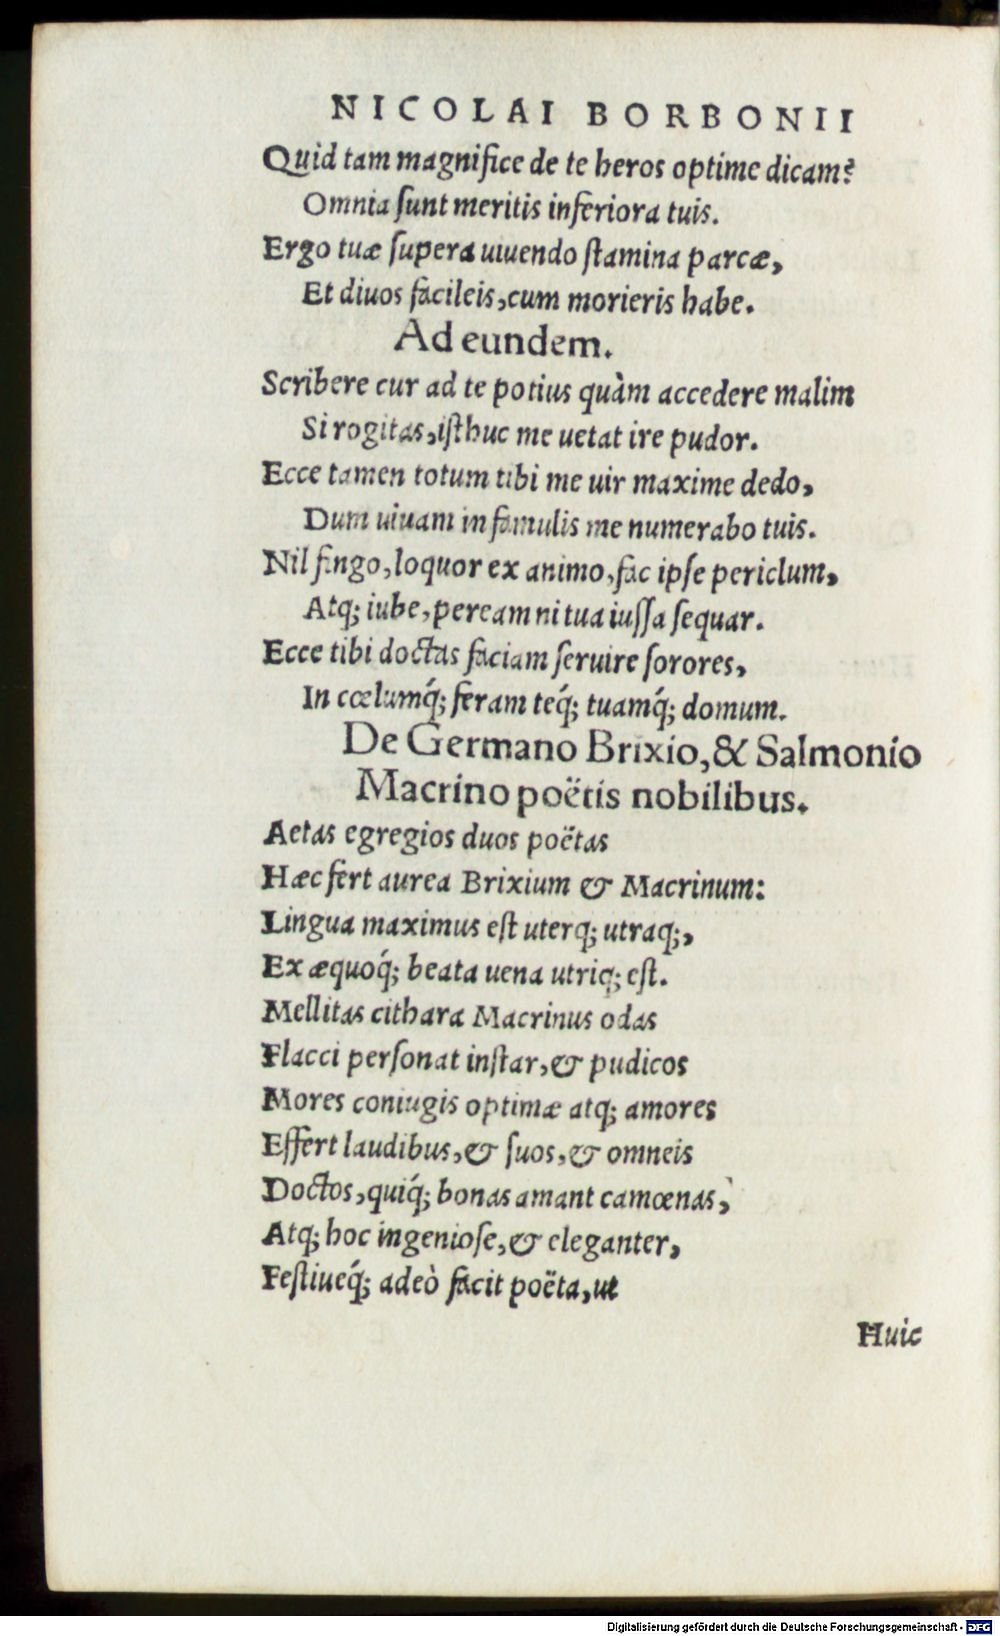 NICOLAI BORBONII
Quid tam magnifice de te heros optime dicam?
Omnia sunt meritis inferiora tuis.
Ergo tuæ supera uiuendo stamina parcæ,
Et diuos facileis, cum morieris habe.
Ad eundem.
Scribere cur ad te potius quàm accedere malim
Si rogitas, isthuc me uetat ire pudor.
Ecce tamen totum tibi me uir maxime dedo,
Dum uiuam in famulis me numerabo tuis.
Nil fingo, loquor ex animo, fac ipse periclum,
Atq; iube, peream ni tua iussa sequar.
Ecce tibi doctas faciam seruire sorores,
In cœlumq́; feram teq́; tuamq́; domum.
De Germano Brixio, & Salmonio
Macrino poëtis nobilibus.
Aetas egregios duos poëtas
Hæc fert aurea Brixium & Macrinum:
Lingua maximus est uterq; utraq;,
Ex æquoq́; beata uena utriq; est.
Mellitas cithara Macrinus odas
Flacci personat instar, & pudicos
Mores coniugis optimæ atq; amores
Effert laudibus, & suos, & omneis
Doctos, quiq́; bonas amant camœnas,
Atq; hoc ingeniose, & eleganter,
Festiueq́; adeò facit poëta, ut
Huic
Digitalisierung gefördert durch die Deutsche Forschungsgemeinschaft - DFG